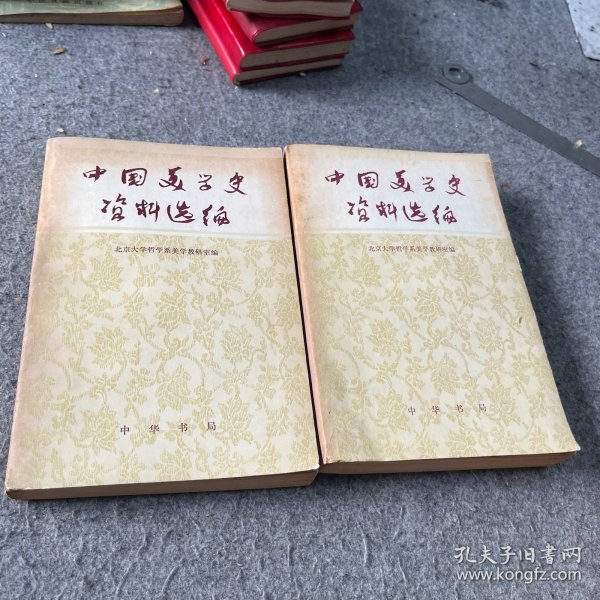 中国美学史
资料选编
北京大学哲学系美学教研室编
中华书局
中国美学史
资料选编
北京大学哲学系美学教研室编
中华书局
孔夫子旧书网
www.kongfz.com